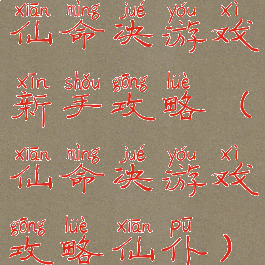 xiān mìng jué yóu xì
仙命决游戏
xīn shǒu gōng lüè
新手攻略（
xiān mìng jué yóu xì
仙命决游戏
gōng lüè xiān pū
攻略仙仆）